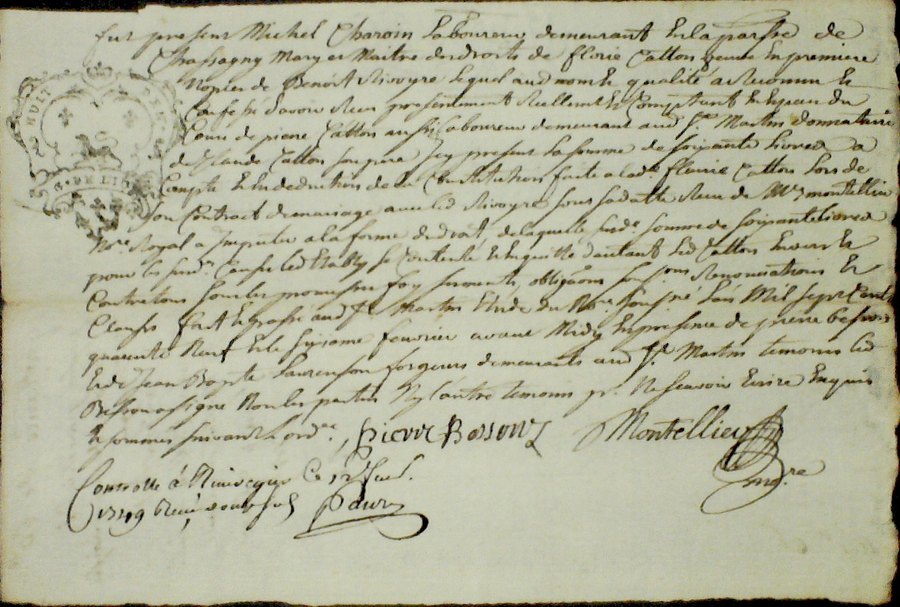 fut present Michel Charoin Laboureur demeurant En la parsse de
Chassagny Mary et Maitre des droits de florie Catton veuve En premiere
Nopces de Benoit Rivoyre Lequel aud nom Et qualité a Reconnu Et
Confessé davoir Reçu presentement Reellement Et Comptant En Especes du
Cours de pierre Catton aussi Laboureur demeurant aud St Martin donnataire
de Claude Catton son pere Icy present La somme de soixante Livres a
Compte Et En deduction de la Constitution faite a lade florie Catton Lors de
son Contract de mariage avec led Rivoyre sous sa datte Reçu de Me montellier
Nre Royal a Imputer a la forme de droit, de laquelle susde somme de soixante Livres
pour les susd Causes led Se Contente Et En quitte d'autant Led Catton Envers Et
Contre tous sous les promesses foy serments obligaons Renonciations Et
Clauses fait Et passé aud St Martin Etude du Nre soussigné Lan Mil sept Cent
quarante Neuf Et le sixieme fevrier avant Midy En presence de pierre besson
Et de Jean Bapte Laurenson forgeurs demeurants aud St Martin temoins led
Besson a signé Non les parties Ny lautre temoin pr Ne scavoir Ecrire Enquis
Et sommés suivant Lordce
, pierre Besson
Montellier
nre
Controllé à Rivedegier Ce 12e fevr.
1749 Reçu douze sols